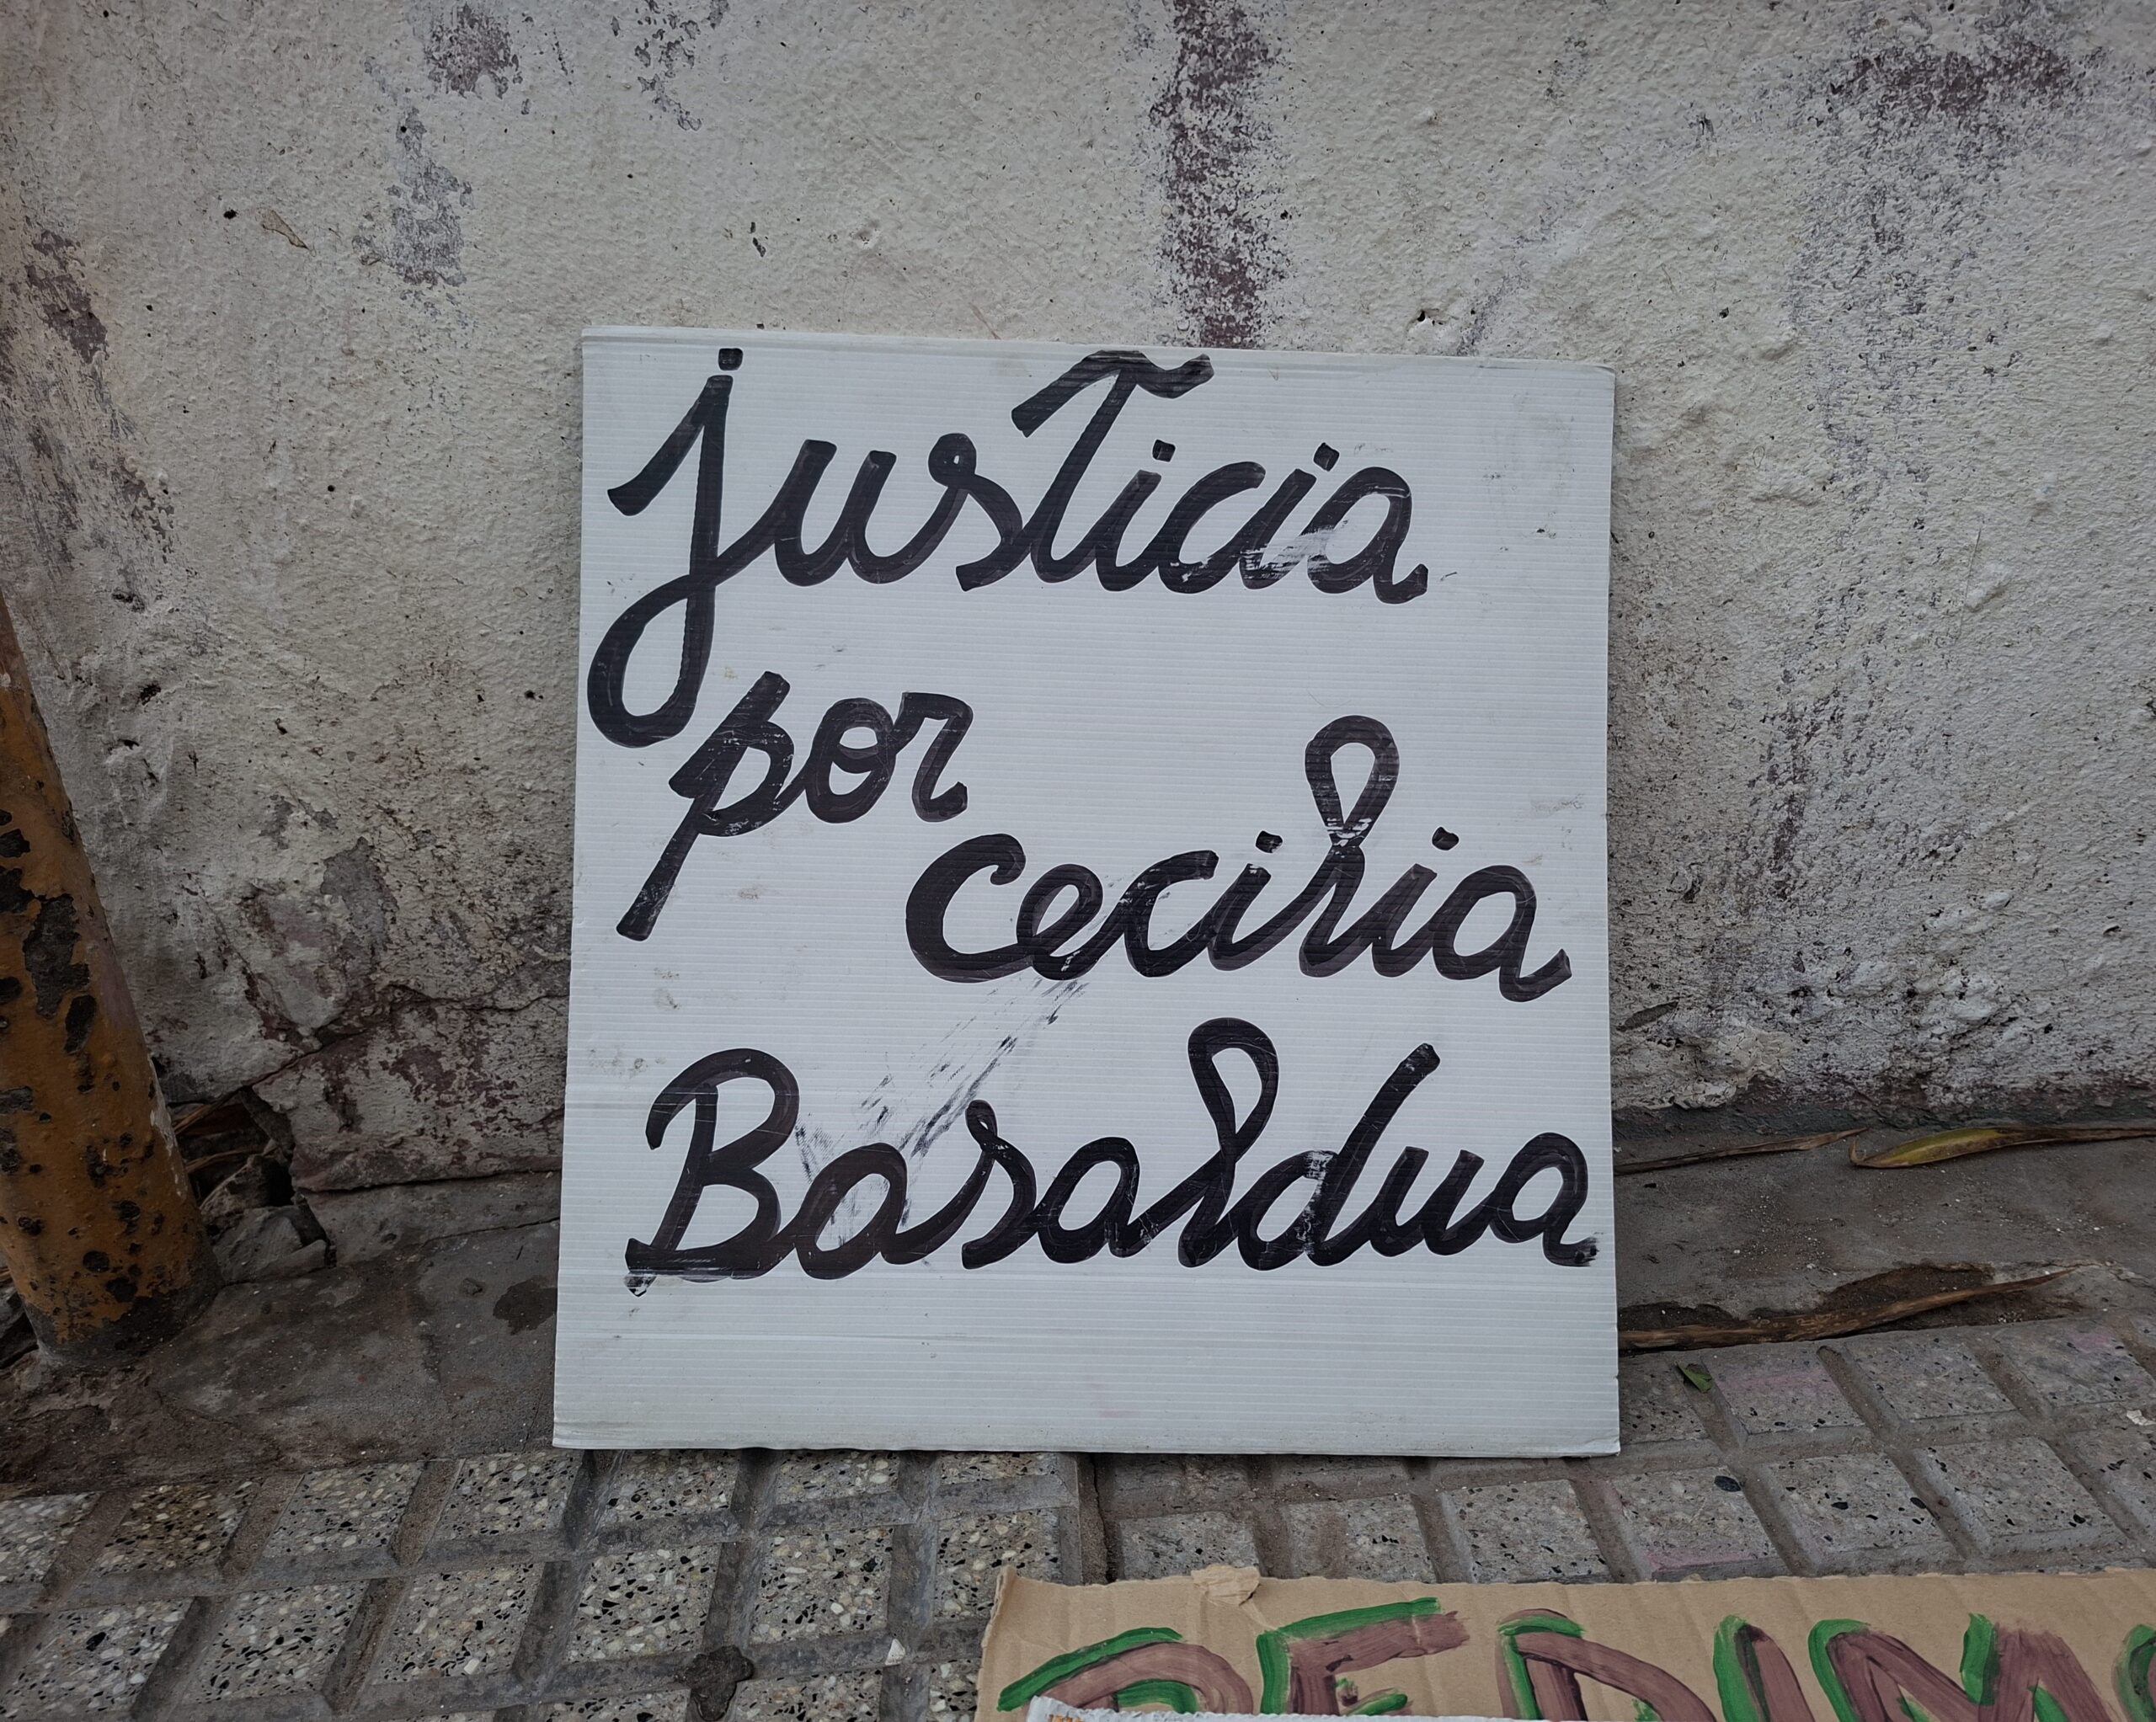 justicia
por
cecilia
Basaldua